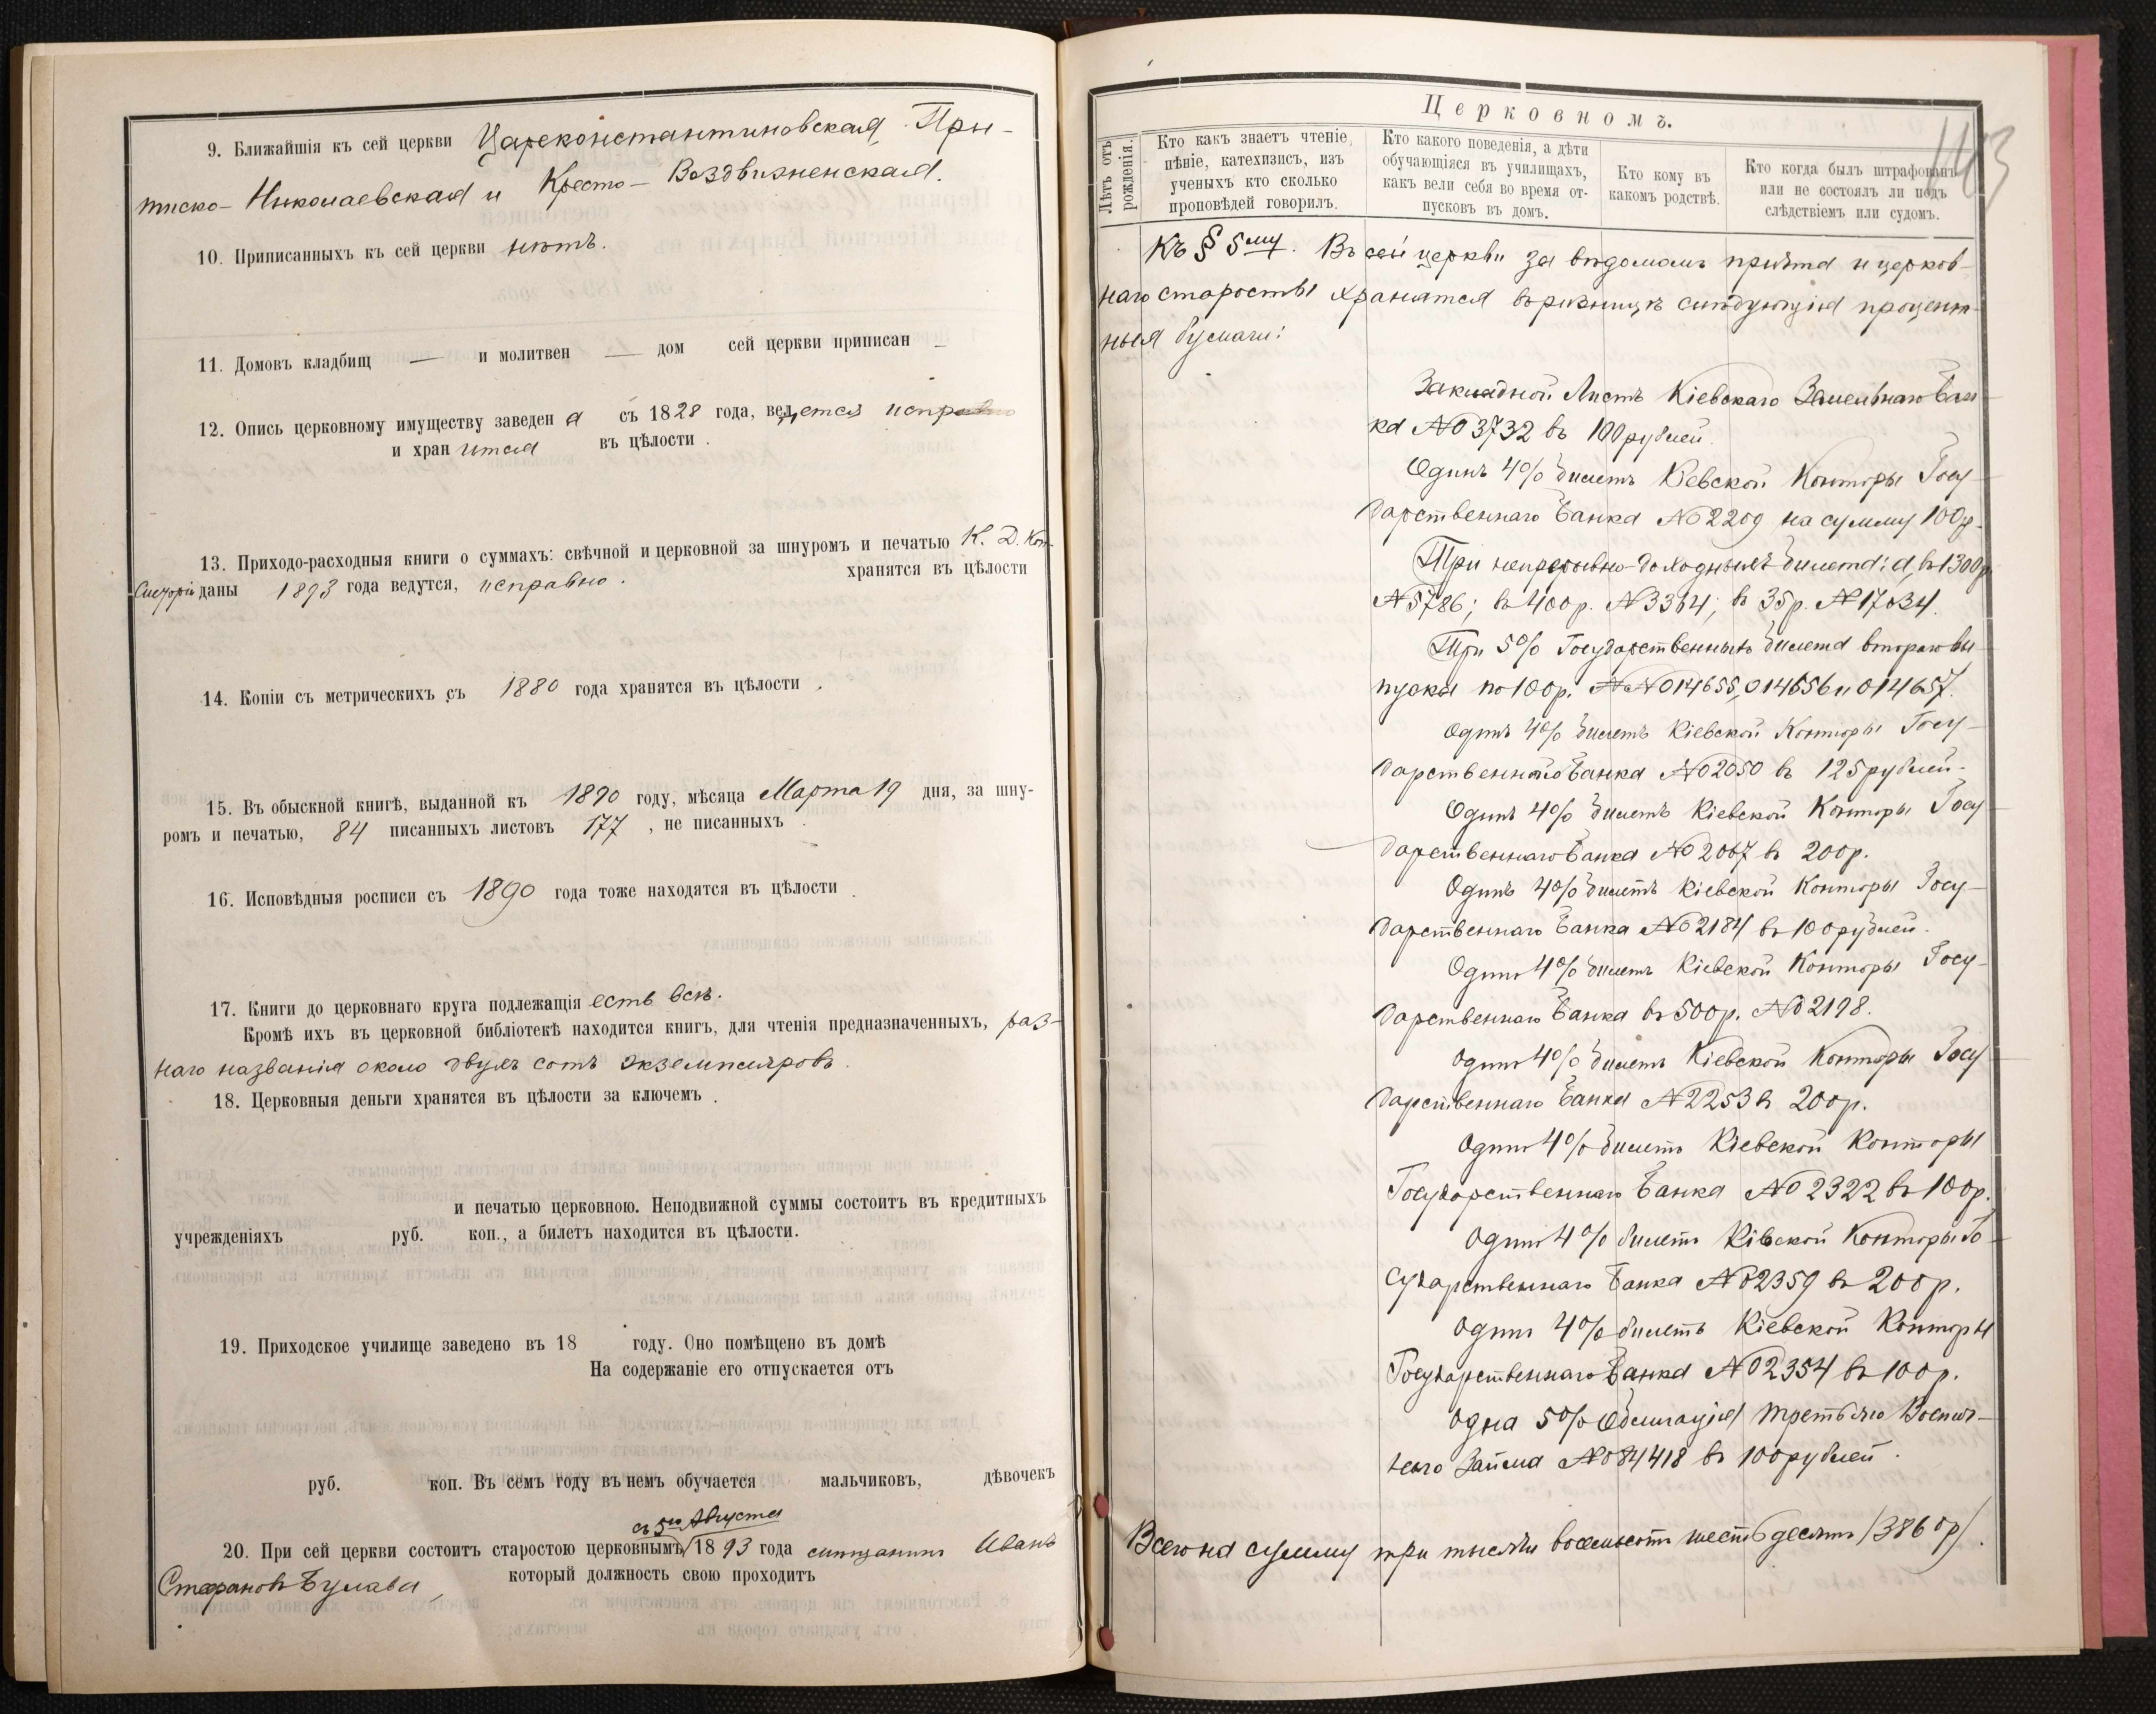 9. Ближайшія къ сей церкви Цареконстантиновская, При-
тиско-Николаевская и Кресто-Воздвиженская.
10. Приписанныхъ къ сей церкви нѣтъ.
11. Домовъ кладбищ — и молитвен — дом сей церкви приписан —
12. Опись церковному имуществу заведен а съ 1828 года, ведется исправно
и хранится въ цѣлости.
13. Приходо-расходныя книги о суммахъ: свѣчной и церковной за шнуромъ и печатью К. Д. Кон-
систоріи даны 1893 года ведутся, исправно. хранятся въ цѣлости
14. Копіи съ метрическихъ съ 1880 года хранятся въ цѣлости.
15. Въ обыскной книгѣ, выданной къ 1890 году, мѣсяца Марта 19 дня, за шну-
ромъ и печатью, 84 писанныхъ листовъ 177, не писанныхъ
16. Исповѣдныя росписи съ 1890 года тоже находятся въ цѣлости.
17. Книги до церковнаго круга подлежащія есть всѣ.
Кромѣ ихъ въ церковной библіотекѣ находится книгъ, для чтенія предназначенныхъ, раз-
наго названія около двухъ сотъ экземпляровъ.
18. Церковныя деньги хранятся въ цѣлости за ключемъ.
и печатью церковною. Неподвижной суммы состоитъ въ кредитныхъ
учрежденіяхъ руб. коп., а билетъ находится въ цѣлости.
19. Приходское училище заведено въ 18 году. Оно помѣщено въ домѣ
На содержаніе его отпускается отъ
руб. коп. Въ семъ году въ немъ обучается мальчиковъ, дѣвочекъ
съ 5го Августа
20. При сей церкви состоитъ старостою церковнымъ 1893 года мѣщанинъ Иванъ
Стефановъ Булава, который должность свою проходитъ
Церковномъ.
113
Лѣтъ отъ рожденія.
Кто какъ знаетъ чтеніе, пѣніе, катехизисъ, изъ ученыхъ кто сколько проповѣдей говорилъ.
Кто какого поведенія, а дѣти обучающіяся въ училищахъ, какъ вели себя во время отпусковъ въ домъ.
Кто кому въ какомъ родствѣ.
Кто когда былъ штрафованъ или не состоялъ ли подъ слѣдствіемъ или судомъ.
Къ § 5му. Въ сей церкви за вѣдомомъ причта и церков-
наго старосты хранятся въ ризницѣ слѣдующія процент-
ныя бумаги:
Закладной Листъ Кіевскаго Земельнаго Бан-
ка №03732 въ 100 рублей.
Одинъ 4% билетъ Кіевской Конторы Госу-
дарственнаго Банка №02209 на сумму 100р.
Три непрерывно-доходныхъ билета: а, въ 1300р.
№5786; въ 400р. №3364; въ 35р. №17034.
Три 5% Государственныхъ билета втораго вы-
пуска по 100р. №№014655, 014656 и 014657.
Одинъ 4% билетъ Кіевской Конторы Госу-
дарственнаго Банка №02050 въ 125 рублей.
Одинъ 4% билетъ Кіевской Конторы Госу-
дарственнаго Банка №02067 въ 200р.
Одинъ 4% билетъ Кіевской Конторы Госу-
дарственнаго Банка №02184 въ 100 рублей.
Одинъ 4% билетъ Кіевской Конторы Госу-
дарственнаго Банка въ 500р. №02198.
Одинъ 4% билетъ Кіевской Конторы Госу-
дарственнаго Банка №2253 въ 200р.
Одинъ 4% билетъ Кіевской Конторы
Государственнаго Банка №02322 въ 100р.
Одинъ 4% билетъ Кіевской Конторы Го-
сударственнаго Банка №02359 въ 200р.
Одинъ 4% билетъ Кіевской Конторы
Государственнаго Банка №02354 въ 100р.
Одна 5% Облигація третьяго Восточ-
наго Займа №084418 въ 100 рублей.
Всего на сумму три тысячи восемьсотъ шестьдесятъ /3860р/.